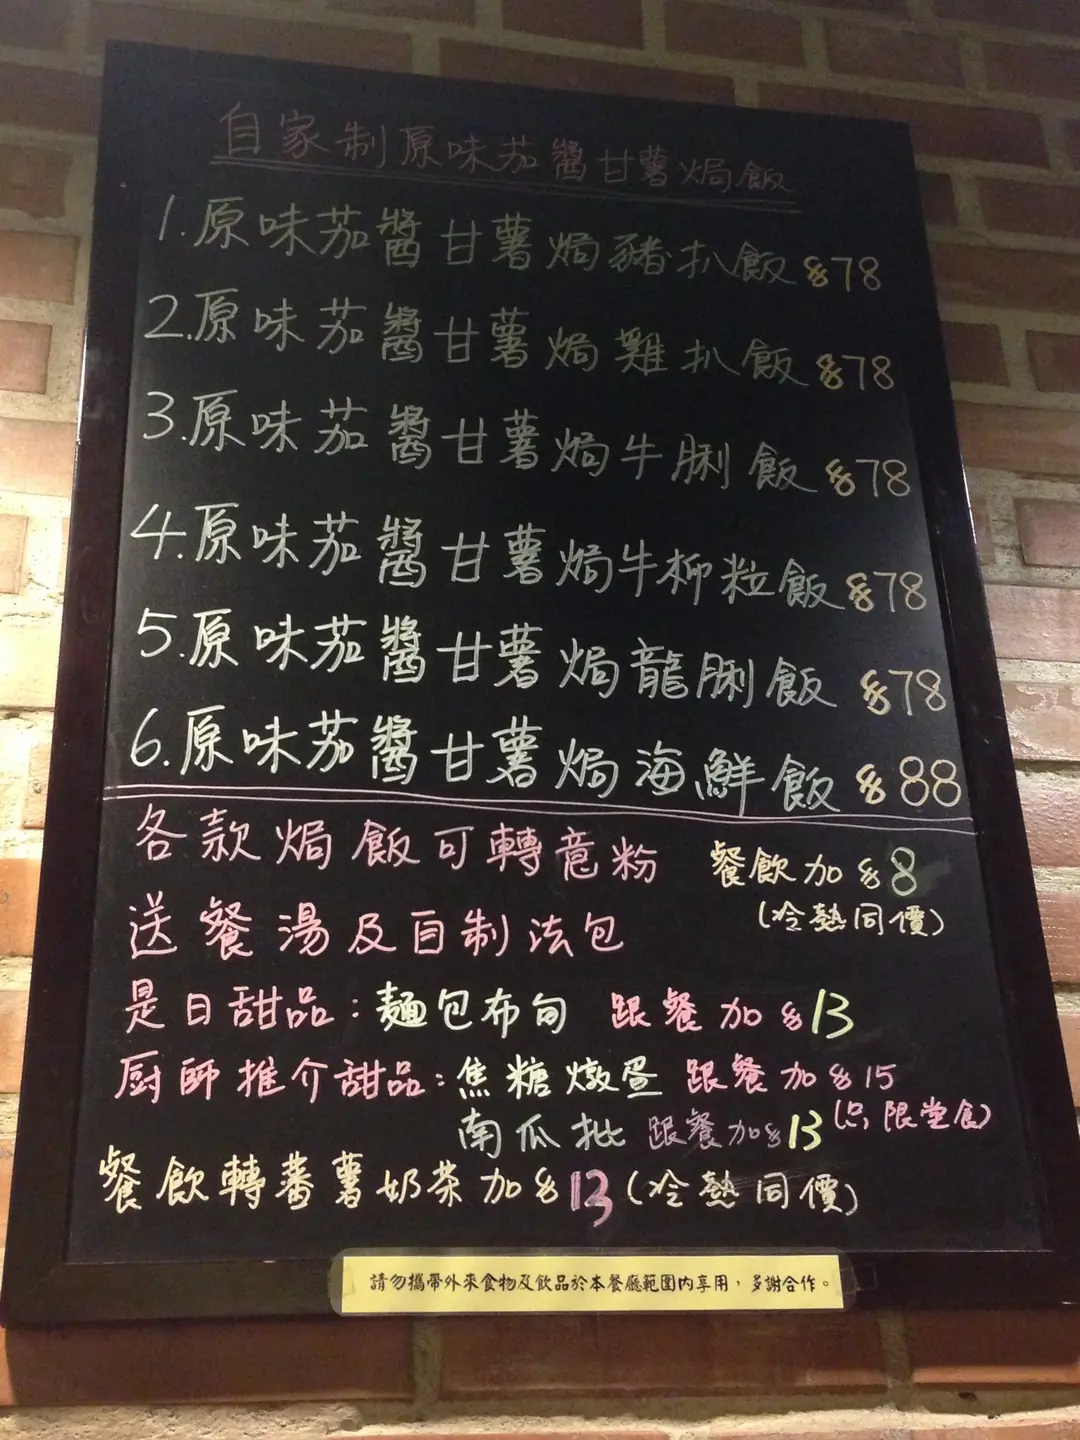 自家制原味茄醬甘薯焗飯
1.原味茄醬甘薯焗豬扒飯 $78
2.原味茄醬甘薯焗雞扒飯 $78
3.原味茄醬甘薯焗牛脷飯 $78
4.原味茄醬甘薯焗牛柳粒飯 $78
5.原味茄醬甘薯焗龍脷飯 $78
6.原味茄醬甘薯焗海鮮飯 $88
各款焗飯可轉意粉 餐飲加$8
送餐湯及自制法包 (冷熱同價)
是日甜品:麵包布甸 跟餐加$13
厨師推介甜品:焦糖燉蛋 跟餐加$15
南瓜批 跟餐加$13 (只限堂食)
餐飲轉蕃薯奶茶加$13(冷熱同價)
請勿攜帶外來食物及飲品於本餐廳範圍內享用，多謝合作。